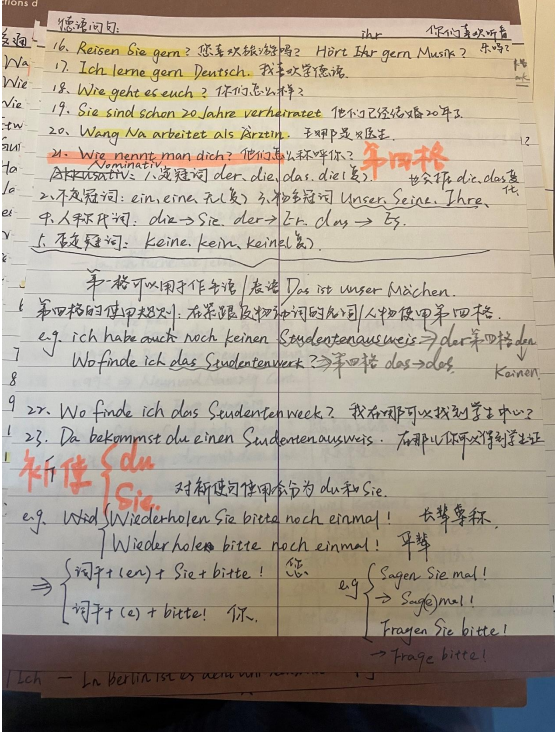 德语问句:
16. Reisen Sie gern? 您喜欢旅游吗? Hört Ihr gern Musik?
ihr 你们喜欢听音乐吗?
17. Ich lerne gern Deutsch. 我喜欢学德语.
18. Wie geht es euch? 你们怎么样?
19. Sie sind schon 20 Jahre verheiratet 他们已经结婚20年了
20. Wang Na arbeitet als Ärztin. 王娜是女医生.
21. Wie nennt man dich? 他们怎么称呼你? 第四格
Nominativ
Akkusativ: 1. 定冠词 der. die. das. die(复).
2. 不定冠词: ein, eine, 无(复) 3. 物主冠词 Unser. Seine. Ihre.
4. 人称代词: die → Sie. der → Er. das → Es.
5. 否定冠词: keine. kein, keine(复).
第一格可以用于作主语/表语 Das ist unser Mächen.
第四格的使用规则: 在紧跟及物动词的名词/人称使用第四格.
e.g. ich habe auch noch keinen Studentenausweis ⇒ der第四格den
keinen.
Wo finde ich das Studentenwerk? ⇒ 第四格 das → das.
22. Wo finde ich das Studentenweck? 我在哪可以找到学生中心?
23. Da bekommst du einen Studentenausweis. 在那儿你可以得到学生证
祈使 { du
Sie.
对祈使句使用命令分为 du和Sie.
e.g. Wid { Wiederholen Sie bitte noch einmal! 长辈尊称
Wiederhole bitte noch einmal! 平辈
⇒ { 词干+(en) + Sie + bitte! 您
词干+(e) + bitte! 你.
e.g { Sagen Sie mal!
→ Sag(e) mal!
Fragen Sie bitte!
→ Frage bitte!